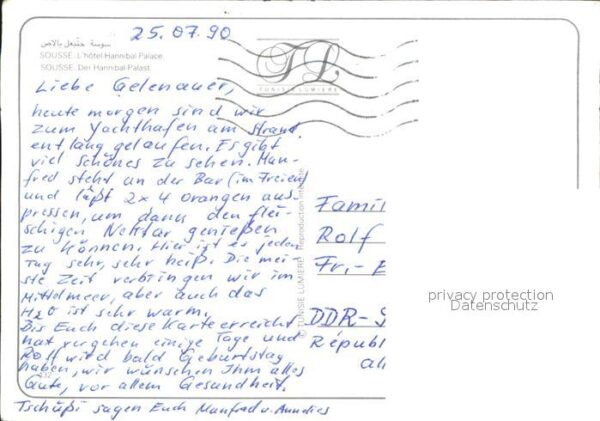 25.07.90
سوسة حنبعل بالاص
SOUSSE. L'hôtel Hannibal Palace.
SOUSSE. Der Hannibal Palast.
TL
TUNISIE LUMIERE
Liebe Gelenauer,
heute morgen sind wir
zum Yachthafen am Strand
entlang gelaufen. Es gibt
viel schönes zu sehen. Man-
fred steht an der Bar (im Freien)
und läßt 2x4 Orangen aus-
pressen, um dann den flei-
schigen Nektar genießen
zu können. Hier ist es jeden
Tag sehr, sehr heiß. Die mei-
ste Zeit verbringen wir im
Mittelmeer, aber auch das
H2O ist sehr warm.
Bis Euch diese Karte erreicht
hat vergehen einige Tage und
Rolf wird bald Geburtstag
haben, wir wünschen Ihm alles
Gute, vor allem Gesundheit.
Tschüßi sagen Euch Manfred u. Annelies
© TUNISIE LUMIERE Reproduction interdite
Famil
Rolf
Fr.-E
DDR-S
Républ
all
privacy protection
Datenschutz